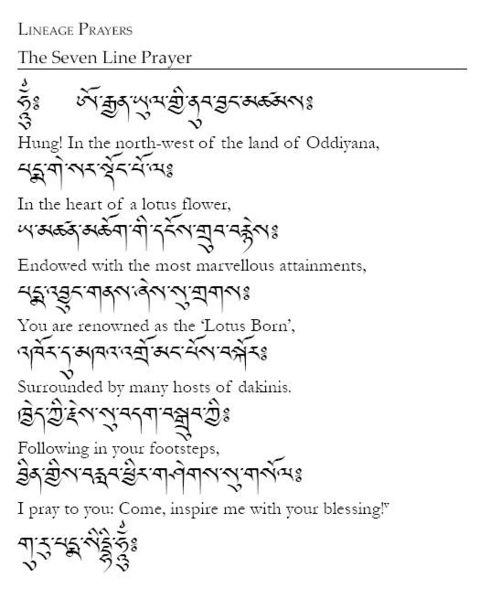 LINEAGE PRAYERS
The Seven Line Prayer
ཧཱུྃ༔ ཨོ་རྒྱན་ཡུལ་གྱི་ནུབ་བྱང་མཚམས༔
Hung! In the north-west of the land of Oddiyana,
པདྨ་གེ་སར་སྡོང་པོ་ལ༔
In the heart of a lotus flower,
ཡ་མཚན་མཆོག་གི་དངོས་གྲུབ་བརྙེས༔
Endowed with the most marvellous attainments,
པདྨ་འབྱུང་གནས་ཞེས་སུ་གྲགས༔
You are renowned as the ‘Lotus Born’,
འཁོར་དུ་མཁའ་འགྲོ་མང་པོས་བསྐོར༔
Surrounded by many hosts of dakinis.
ཁྱེད་ཀྱི་རྗེས་སུ་བདག་བསྒྲུབ་ཀྱི༔
Following in your footsteps,
བྱིན་གྱིས་བརླབ་ཕྱིར་གཤེགས་སུ་གསོལ༔
I pray to you: Come, inspire me with your blessing!v
གུ་རུ་པདྨ་སིདྡྷི་ཧཱུྃ༔